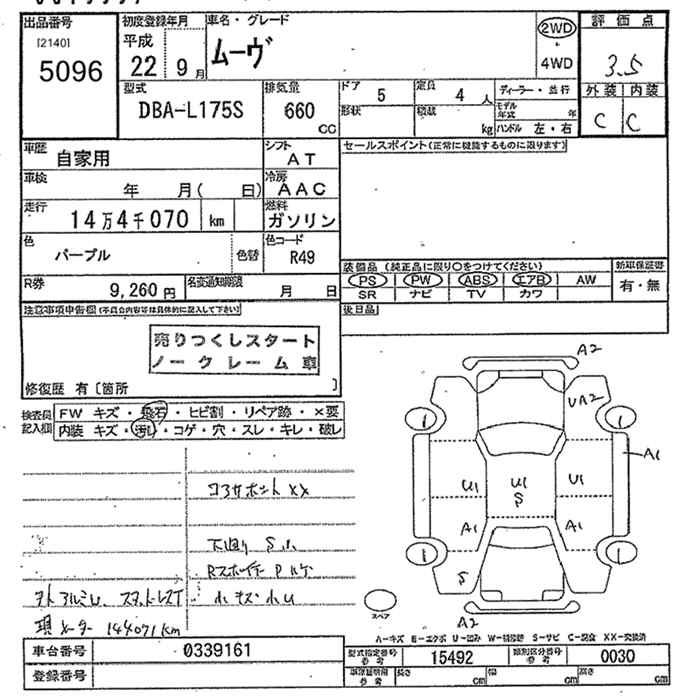 出品番号 初度登録年月 車名・グレード 2WD 評価点
[2140] 平成 ムーヴ ・
5096 22 9月 4WD 3.5
型式 排気量 ドア 5 定員 4人 ディーラー・並行 外装 内装
DBA-L175S 660 CC 形状 積載 kg モデル年式 年 C C
ハンドル 左・右
車歴 自家用 シフト AT セールスポイント(正常に機能するものに限ります)
車検 年 月( 日) 冷房 AAC
走行 14万4千070 km 燃料 ガソリン
色 パープル 色替 色コード R49
装備品 (純正品に限り○をつけてください) 新車保証書
R券 9,260円 名変通知期限 月 日 PS PW ABS エアB AW 有・無
SR ナビ TV カワ
注意事項申告欄(不具合内容等は具体的に記入して下さい) 後日品
売りつくしスタート
ノークレーム車
修復歴 有〔箇所 〕
検査員 FW キズ・飛石・ヒビ割・リペア跡・×要
記入欄 内装 キズ・汚れ・コゲ・穴・スレ・キレ・破レ
A2
UA2
1 1
A1
U1 U1 U1
S
A1 A1
1 1
S
コアサポート XX
下廻り S小
スペア
A2
現メーター 144071km
A-キズ E-エクボ U-凹み W-補修跡 S-サビ C-腐食 XX-交換済
車台番号 0339161 型式指定番号 参考 15492 類別区分番号 参考 0030
登録番号 参考 長さ cm 幅 cm 高さ cm